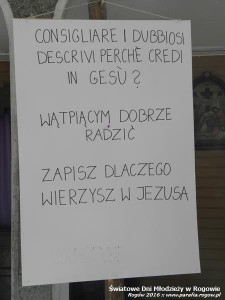 CONSIGLIARE I DUBBIOSI
DESCRIVI PERCHÈ CREDI
IN GESÙ?
WĄTPIĄCYM DOBRZE
RADZIĆ
ZAPISZ DLACZEGO
WIERZYSZ W JEZUSA
Światowe Dni Młodzieży w Rogowie
Rogów 2016 :: www.parafia.rogow.pl